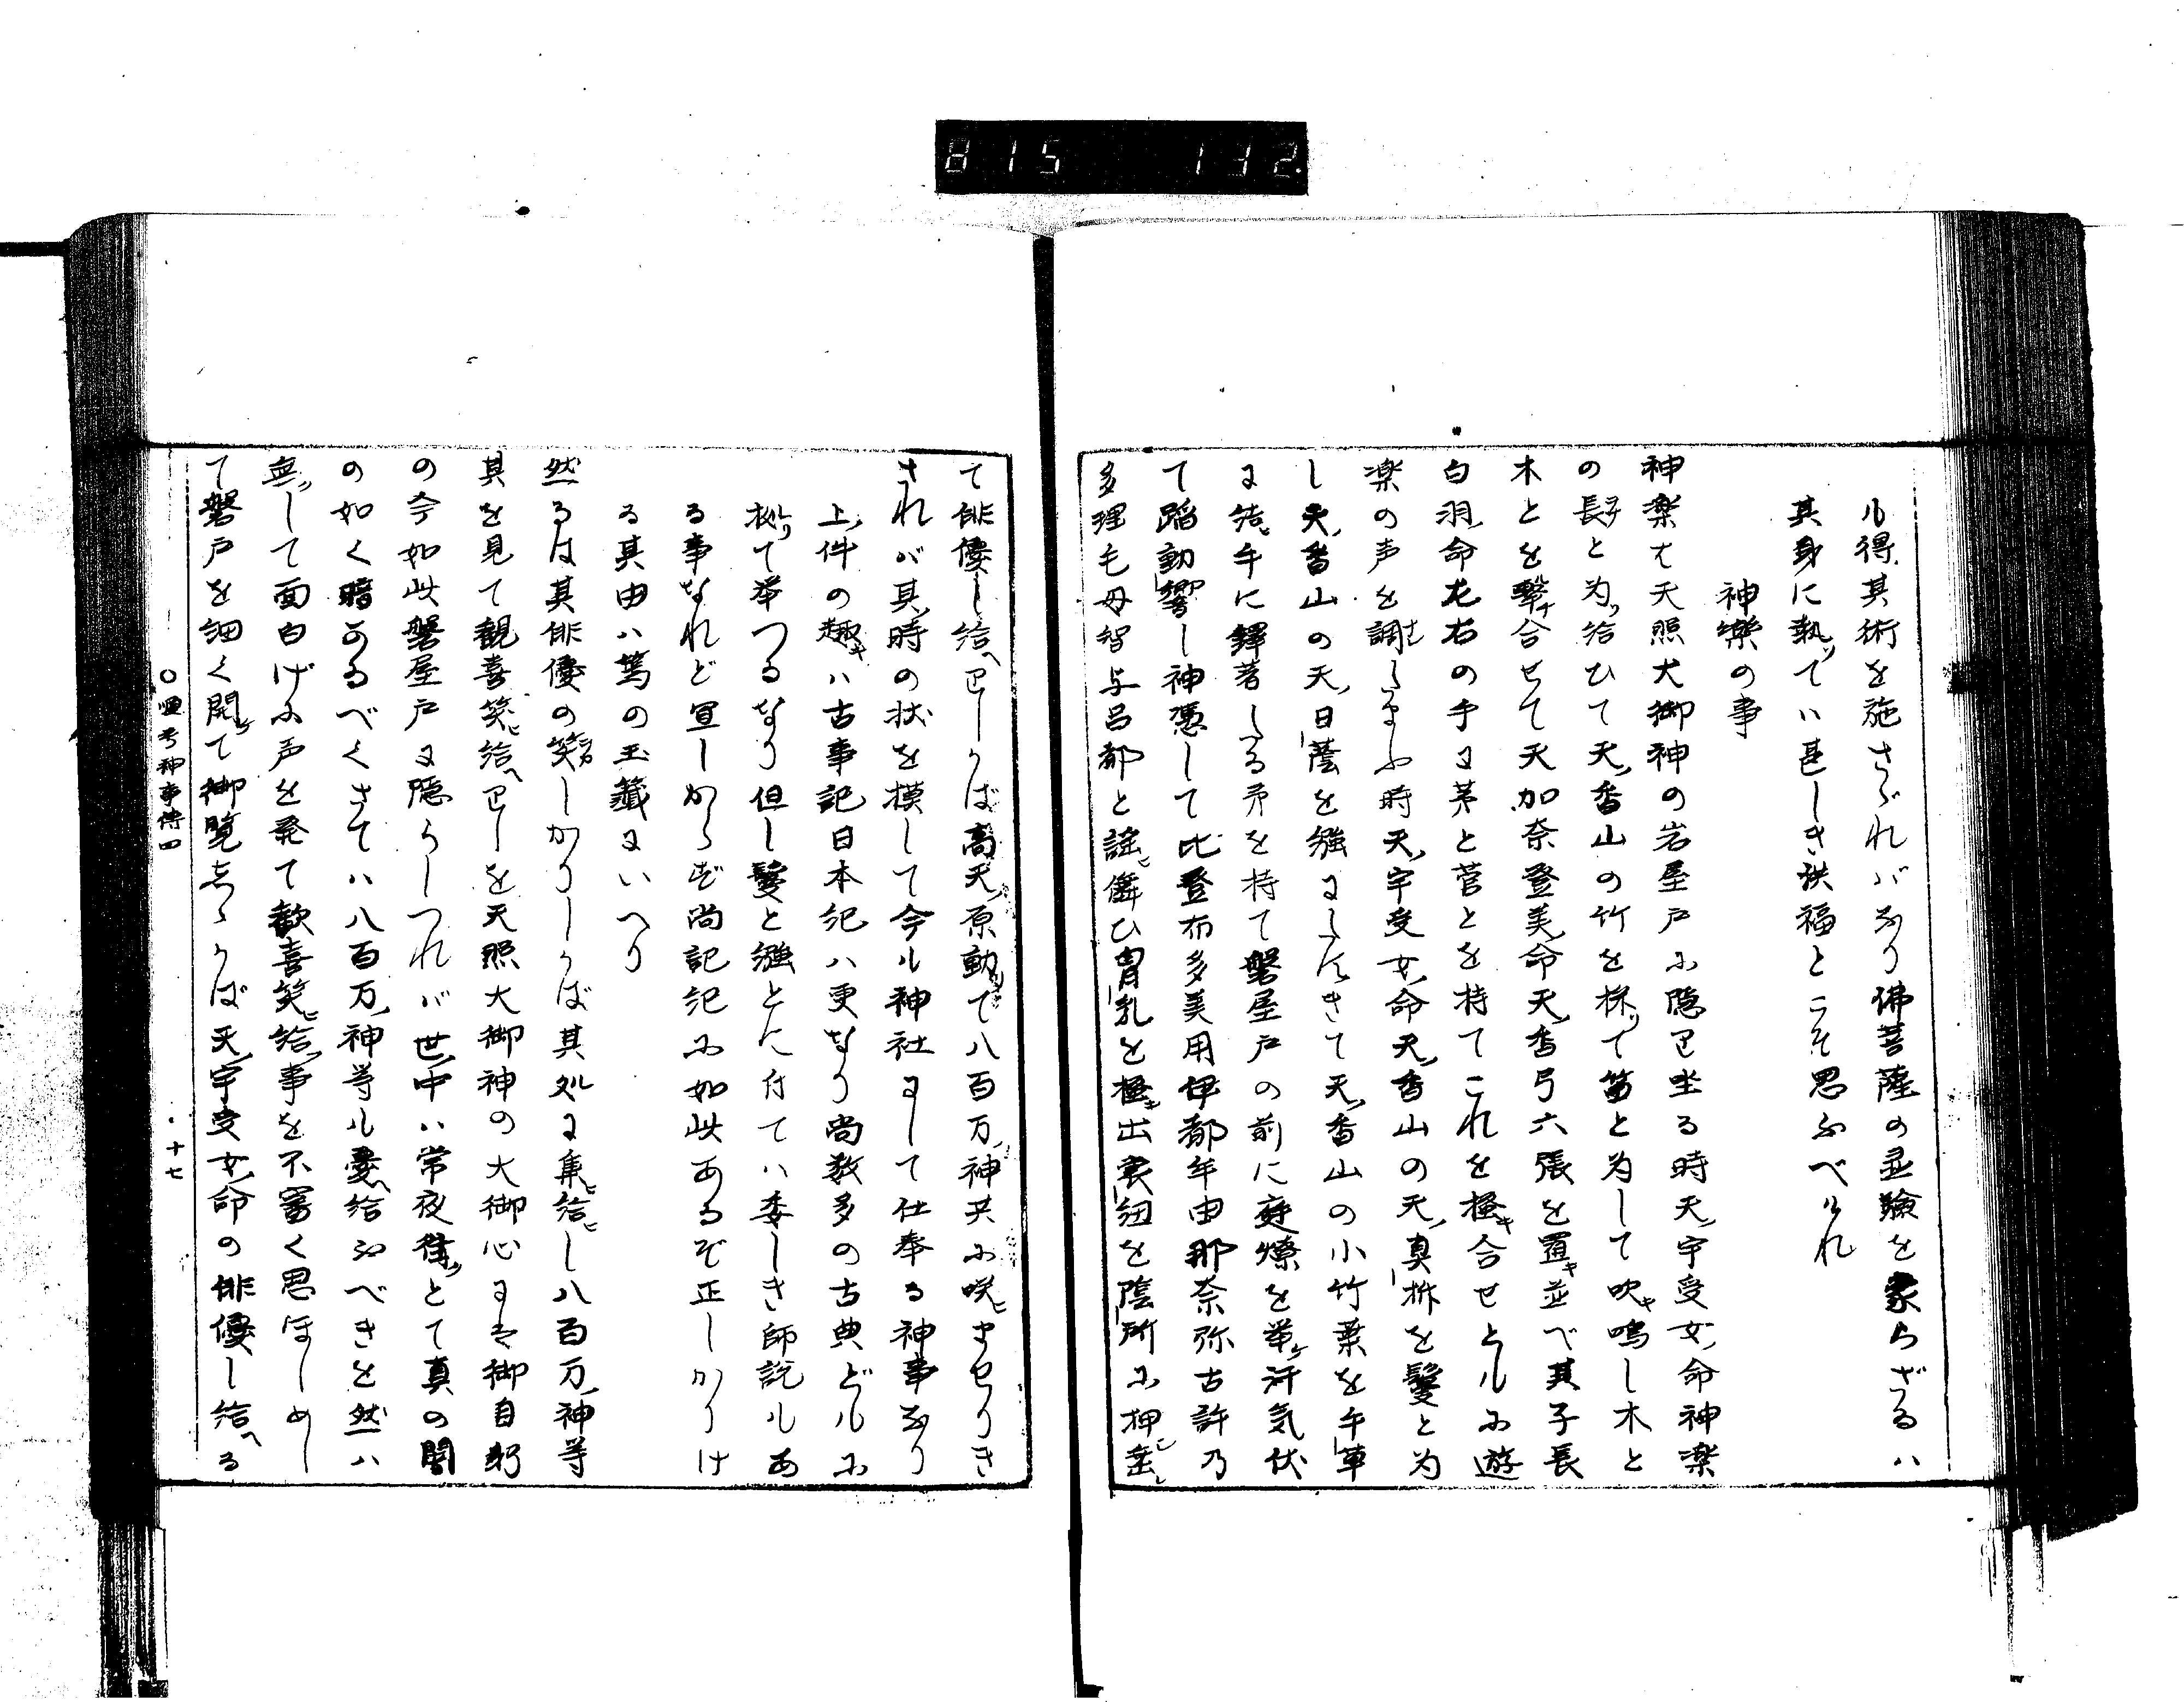 815 132
ル得其術を施さゞればなり佛菩薩の霊驗を蒙らざるハ
其身に執ッてハ甚しき洪福とこそ思ふべけれ
神樂の事
神楽は天照大御神の岩屋戸に隠り坐る時天ノ宇受女ノ命神楽
の長と為ッ給ひて天ノ香山の竹を採ッて笛と為して吹キ鳴し木と
木とを撃チ合せて天加奈登美ノ命天ノ香弓六張を置キ並べ其子長
白羽ノ命左右の手に茅と菅とを持てこれを掻キ合せともに遊
楽の声を調したまふ時天ノ宇受女ノ命天ノ香山の天ノ真拆を鬘と為
し天ノ香山の天ノ日蔭を繦にしたすきて天ノ香山の小竹葉を手草
に結ヒ手に鐸著したる矛を持て磐屋戸の前に庭燎を挙ケ汗気伏
て蹈動響し神憑して比登布多美用伊都牟由那奈弥古許乃
多理毛母智与呂都と謡ヒ儛ひ胷乳を掻キ出裳紐を陰所に押シ垂レ
て俳優し給へりしかば高天ノ原動りて八百万ノ神共に咲ヒましりき
されバ其ノ時の状を模して今ル神社にして仕奉る神事なり
上ノ件の趣キハ古事記日本紀ハ更なり尚数多の古典どルに
拠りて挙つるなり但し鬘と繦とに付てハ委しき師説ルあ
る事なれど宜しからず尚記紀に如此あるぞ正しかりけ
る其由ハ篤の玉籤にいへり
然るは其俳優の笑しかりしかば其処に集ヒ給ヒし八百万ノ神等
其を見て観喜笑ヒ給へりしを天照大御神の大御心には御自躬
の今如此磐屋戸に隠らしつれバ世ノ中ハ常夜往ッとて真の闇
の如く暗かるべくさてハ八百万ノ神等ル憂へ給ふべきを然ハ
無ッして面白げに声を発て歓喜笑ヒ給ッ事を不審く思ほしめし
て磐戸を細く開ケて御覧しゝかば天ノ宇受女ノ命の俳優し給へる
神事傳四
十七